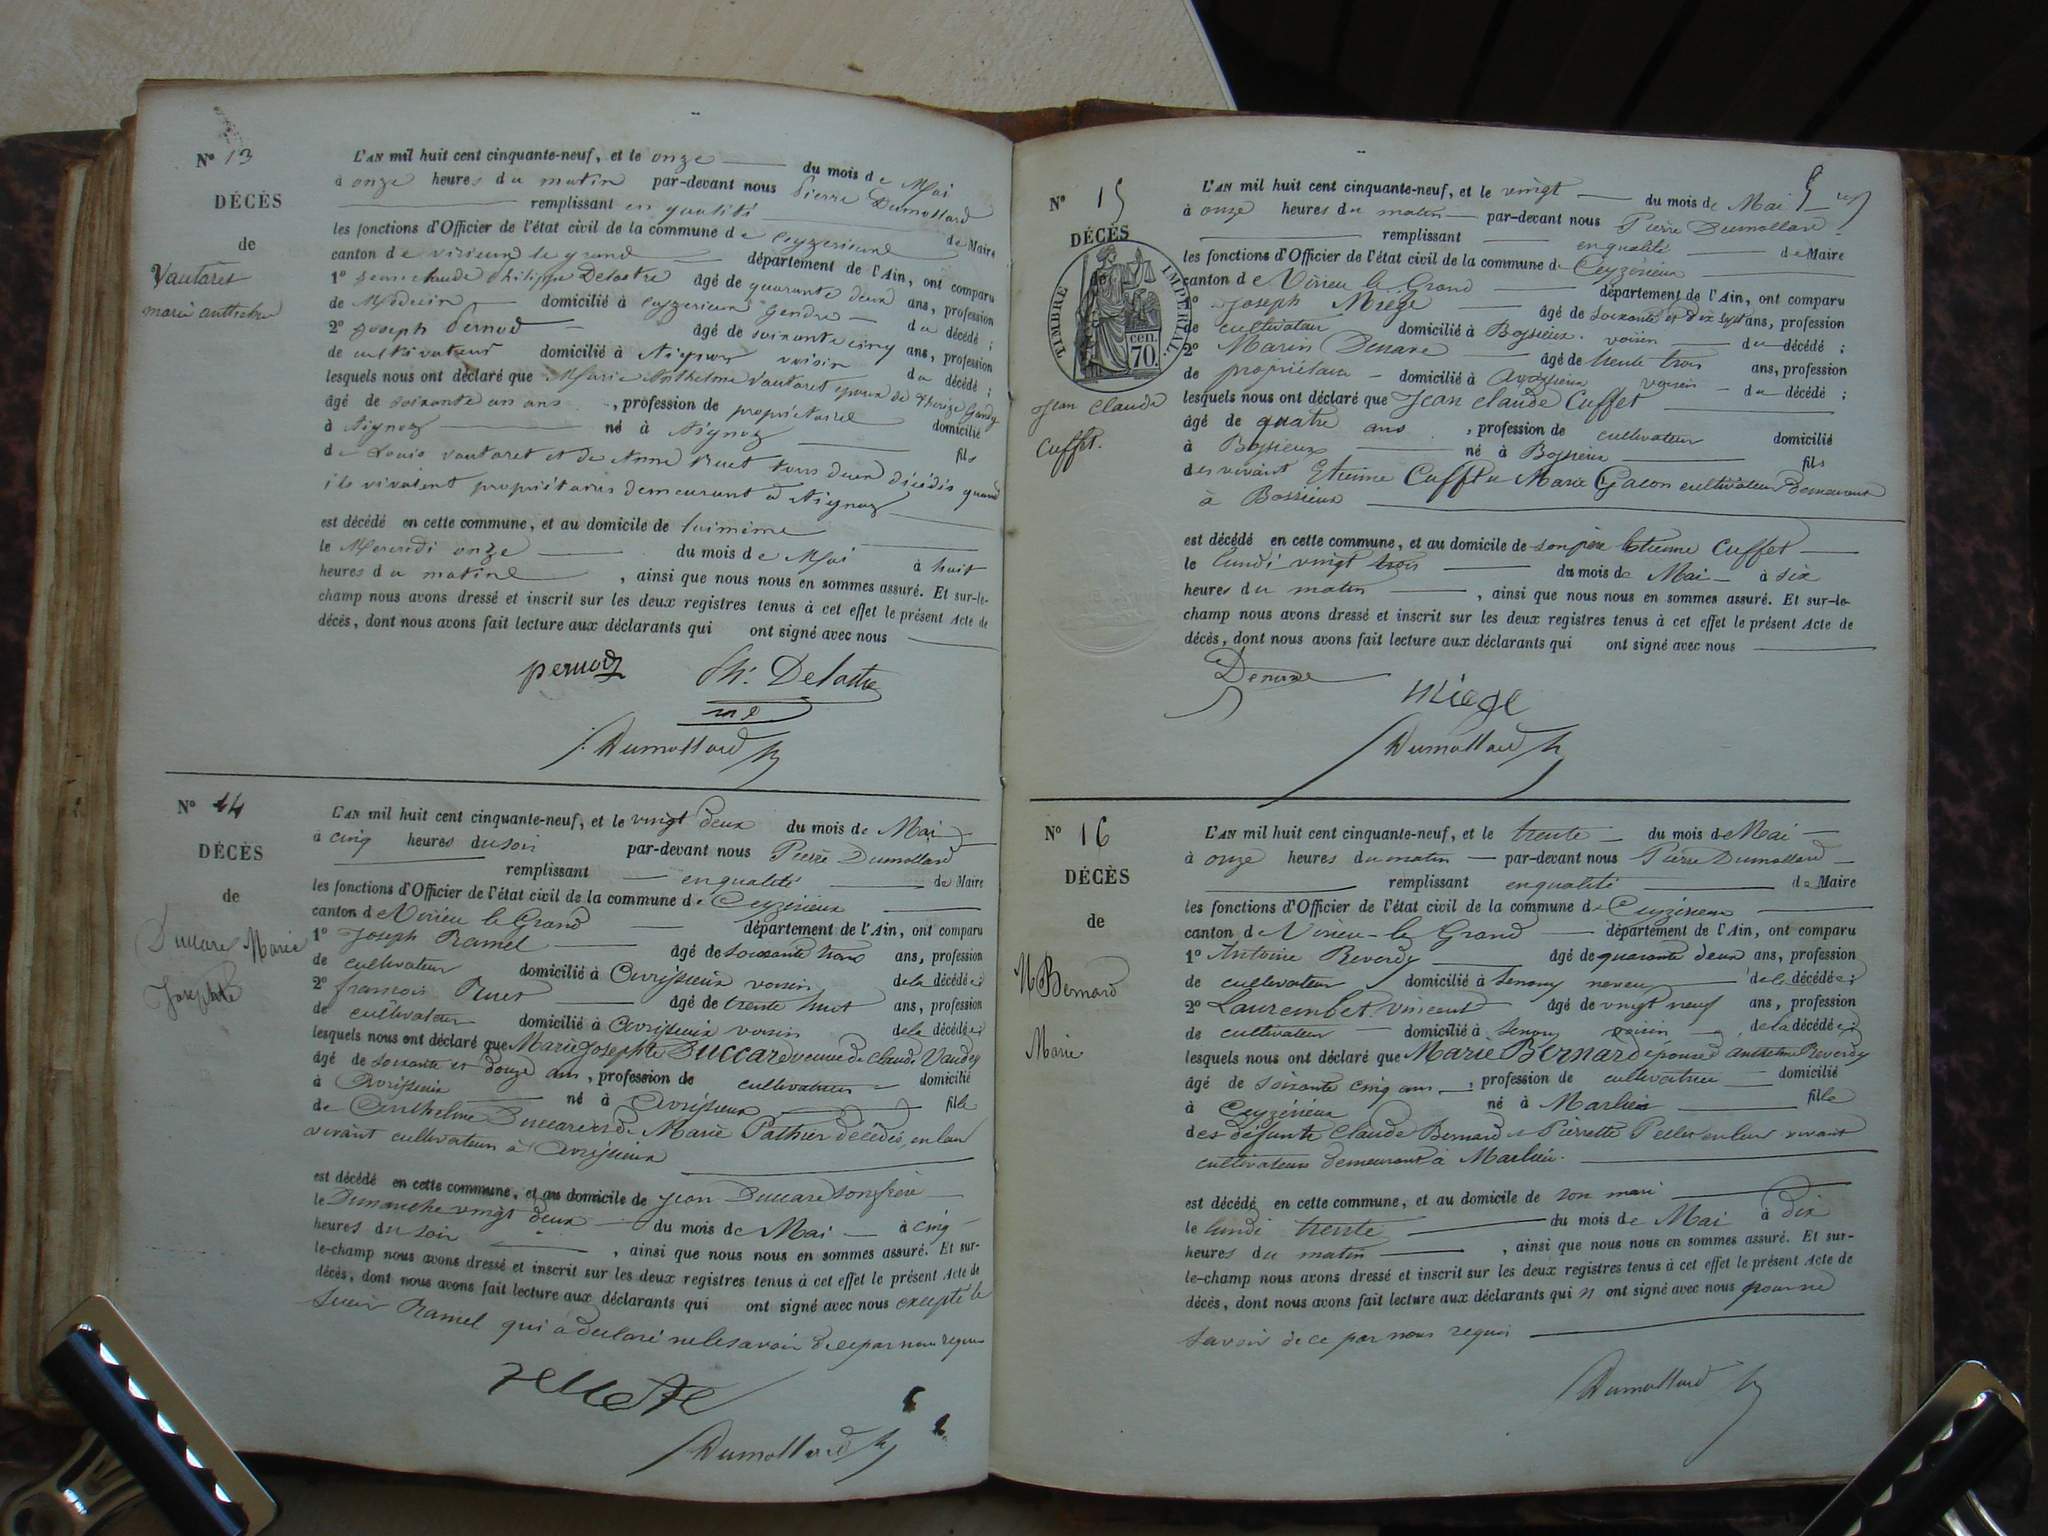 N° 13
DÉCÈS
de
Vautaret
marie anthelme
L'AN mil huit cent cinquante-neuf, et le onze du mois de Mai
à onze heures du matin par-devant nous Pierre Dumollard
remplissant en qualité de Maire
les fonctions d'Officier de l'état civil de la commune de Ceyzerieux
canton de virieux le grand département de l'Ain, ont comparu
1° Jean claude Philippe Delastre âgé de quarante deux ans, profession
de Médecin domicilié à Ceyzerieux Gendre du décédé ;
2° Joseph Pernod âgé de soixante cinq ans, profession
de cultivateur domicilié à Aignoz voisin du décédé ;
lesquels nous ont déclaré que Marie Anthelme Vautaret époux de Gandy
âgé de soixante un ans, profession de propriétaire domicilié
à Aignoz né à Aignoz fils
de Louis Vautaret et de Anne Ruet tous deux décédés quand
ils vivaient propriétaires demeurant à Aignoz
est décédé en cette commune, et au domicile de luimême
le Mercredi onze du mois de Mai à huit
heures du matin, ainsi que nous nous en sommes assuré. Et sur-le-
champ nous avons dressé et inscrit sur les deux registres tenus à cet effet le présent Acte de
décès, dont nous avons fait lecture aux déclarants qui ont signé avec nous
pernod Ph. Delastre
Dumollard
N° 14
DÉCÈS
de
Duccare Marie
Josephte
L'AN mil huit cent cinquante-neuf, et le vingt deux du mois de Mai
à cinq heures du soir par-devant nous Pierre Dumollard
remplissant en qualité de Maire
les fonctions d'Officier de l'état civil de la commune de Ceyzérieux
canton de Virieu le Grand département de l'Ain, ont comparu
1° Joseph Ramel âgé de soixante trois ans, profession
de cultivateur domicilié à Avrissieux voisin de la décédée ;
2° francois Ruet âgé de trente huit ans, profession
de cultivateur domicilié à Avrissieux voisin de la décédée ;
lesquels nous ont déclaré que Marie Josephte Duccare veuve de Claude Vaudey
âgé de soixante et douze ans, profession de cultivateur domicilié
à Avrissieux né à Avrissieux fille
de Anthelme Duccare et de Marie Pathier décédés, en leur
vivant cultivateurs à Avrissieux
est décédé en cette commune, et au domicile de Jean Duccare son frère
le Dimanche vingt deux du mois de Mai à cinq
heures du soir, ainsi que nous nous en sommes assuré. Et sur-
le-champ nous avons dressé et inscrit sur les deux registres tenus à cet effet le présent Acte de
décès, dont nous avons fait lecture aux déclarants qui ont signé avec nous excepté le
sieur Ramel qui a declaré ne le savoir de ce par nous requis
Dumollard
N° 15
DÉCÈS
de
TIMBRE IMPERIAL
70 cen.
Jean Claude
Cuffet.
L'AN mil huit cent cinquante-neuf, et le vingt du mois de Mai
à onze heures du matin par-devant nous Pierre Dumollard
remplissant en qualité de Maire
les fonctions d'Officier de l'état civil de la commune de Ceyzérieux
canton de Virieu le Grand département de l'Ain, ont comparu
1° Joseph Miège âgé de soixante et dix sept ans, profession
de cultivateur domicilié à Bossieux. voisin du décédé ;
2° Marin Ducare âgé de trente trois ans, profession
de propriétaire domicilié à Avrissieux voisin du décédé ;
lesquels nous ont déclaré que Jean Claude Cuffet
âgé de quatre ans, profession de cultivateur domicilié
à Bossieux né à Bossieux fils
des vivant Etienne Cuffet et Marie Gacon cultivateurs Demeurant
à Bossieux
est décédé en cette commune, et au domicile de son père Etienne Cuffet
le lundi vingt trois du mois de Mai à six
heures du matin, ainsi que nous nous en sommes assuré. Et sur-le-
champ nous avons dressé et inscrit sur les deux registres tenus à cet effet le présent Acte de
décès, dont nous avons fait lecture aux déclarants qui ont signé avec nous
miege
Dumollard
N° 16
DÉCÈS
de
Bernard
Marie
L'AN mil huit cent cinquante-neuf, et le trente du mois de Mai
à onze heures du matin par-devant nous Pierre Dumollard
remplissant en qualité de Maire
les fonctions d'Officier de l'état civil de la commune de Ceyzérieux
canton de Virieu-le Grand département de l'Ain, ont comparu
1° Antoine Reverdy âgé de quarante deux ans, profession
de cultivateur domicilié à Senouy neveu de la décédée ;
2° Laurembet Vincent âgé de vingt neuf ans, profession
de cultivateur domicilié à Senouy voisin de la décédée ;
lesquels nous ont déclaré que Marie Bernard épouse d'anthelme Reverdy
âgé de soixante cinq ans, profession de cultivatrice domicilié
à Ceyzérieux né à Marlieu fille
des défunts Claude Bernard et Pierrette Pellet en leur vivant
cultivateurs demeurant à Marlieu.
est décédé en cette commune, et au domicile de son mari
le lundi trente du mois de Mai à dix
heures du matin, ainsi que nous nous en sommes assuré. Et sur-
le-champ nous avons dressé et inscrit sur les deux registres tenus à cet effet le présent Acte de
décès, dont nous avons fait lecture aux déclarants qui n'ont signé avec nous pour ne
savoir de ce par nous requis
Dumollard